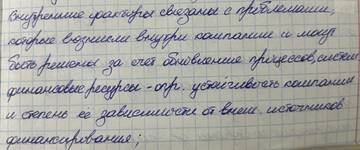 Внутренние факторы связаны с проблемами,
которые возникли внутри компании и могут
быть решены за счет обновления процессов, систем
финансовые ресурсы - опр. устойчивость компании
и степень её зависимости от внеш. источников
финансирования;